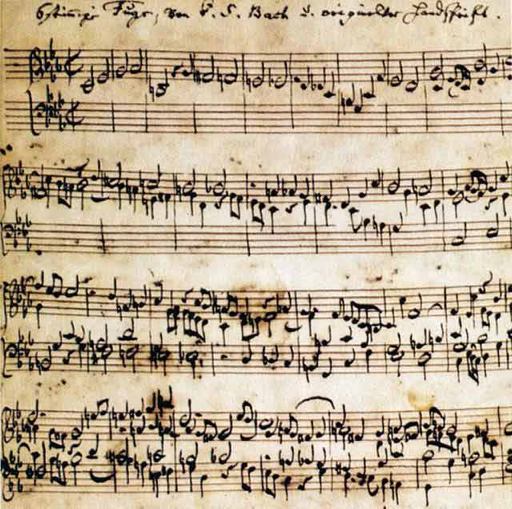 6stimmige Fuge, von J. S. Bach u. origineller Handschrift.